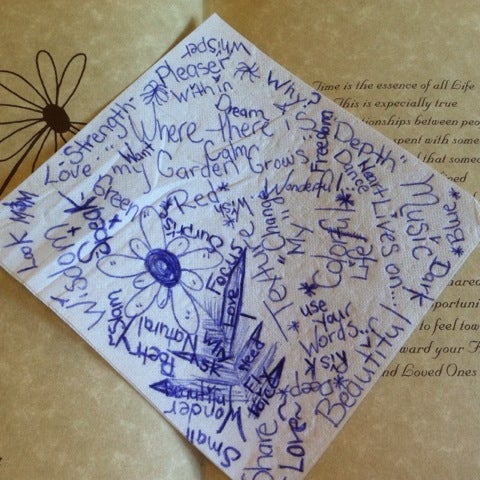 Whisper
Please
Within
Why?
Dream
Strength
Where there is
Calm
Love
Want
my Garden Grows
Freedom
Depth
Dance
Heart
Lives on...
Music
Blue
Dark
*Red*
Wonderful
Wish
Look
Mom
Feel
Speak
Wisdom
Surprise
Focus
Texture
Change
My
Colorful
Life
Love
use
Your
Words
Risk
Beautiful!
Deep
Slam
Poetry
Natural
Why
Ask
Need
Wonder
Small
Share
Love~
Time is the essence of all Life
This is especially true
tionships between peo
spent with
that some
ed
hared
portuni
to feel tow
ward your F
and Loved Ones